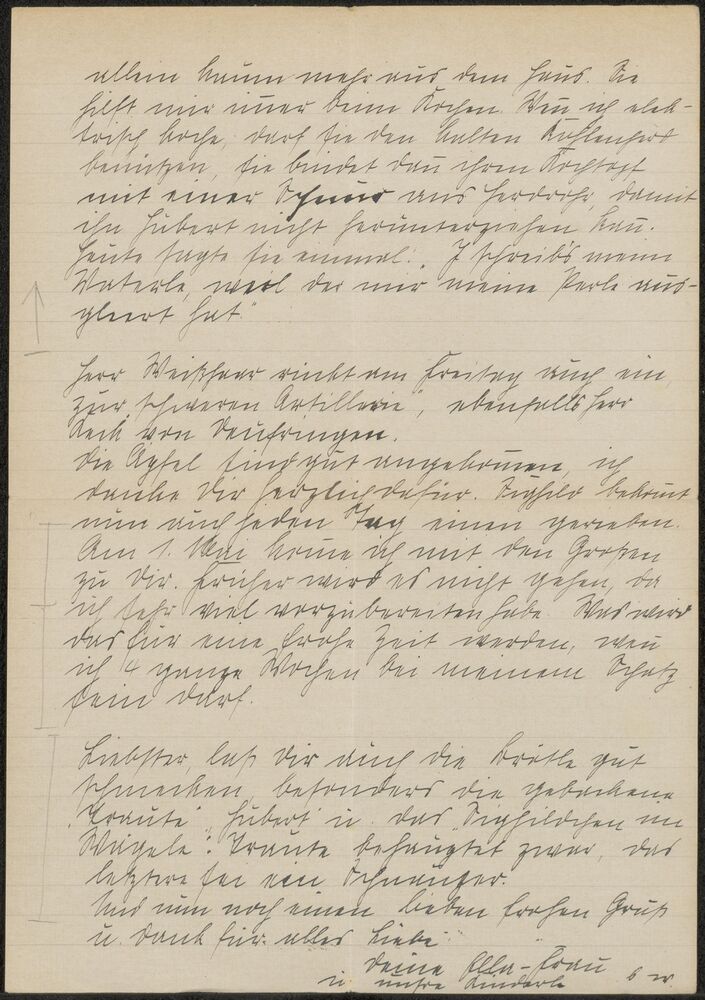 allein kaum mehr aus dem Haus. Sie
hilft mir imer beim Kochen. Wen ich elek-
trisch koche, darf sie den kalten Kohlenherd
benützen, sie bindet dan ihren Kochtopf
mit einer Schnur ans Herdrohr, damit
ihn Hubert nicht herunterziehen kan.
Heute sagte sie einmal: „I schreib's meim
Vaterle, weil der mir meine Perle aus-
gleert hat."
Herr Weißhaar rückt am Freitag auch ein
zur „schweren Artillerie", ebenfalls Herr
Keck von Deufringen.
Die Äpfel sind gut angekomen, ich
danke Dir herzlich dafür. Sighild bekomt
nun auch jeden Tag einen gerieben.
Am 1. Mai kome ich mit den Großen
zu Dir. Früher wird es nicht gehen, da
ich sehr viel vorzubereiten habe. Was wird
das für eine frohe Zeit werden, wen
ich 4 ganze Wochen bei meinem Schatz
sein darf.
Liebster, laß Dir auch die Brötle gut
schmecken, besonders die gebackene
„Traute" Hubert u. das „Sighildchen im
Wägele". Traute behauptet zwar, das
letztere sei ein Schnauzer.
Und nun noch einen lieben frohen Gruß
u. Dank für alles Liebe
Deine Ella-Frau
u. unsre Kinderle